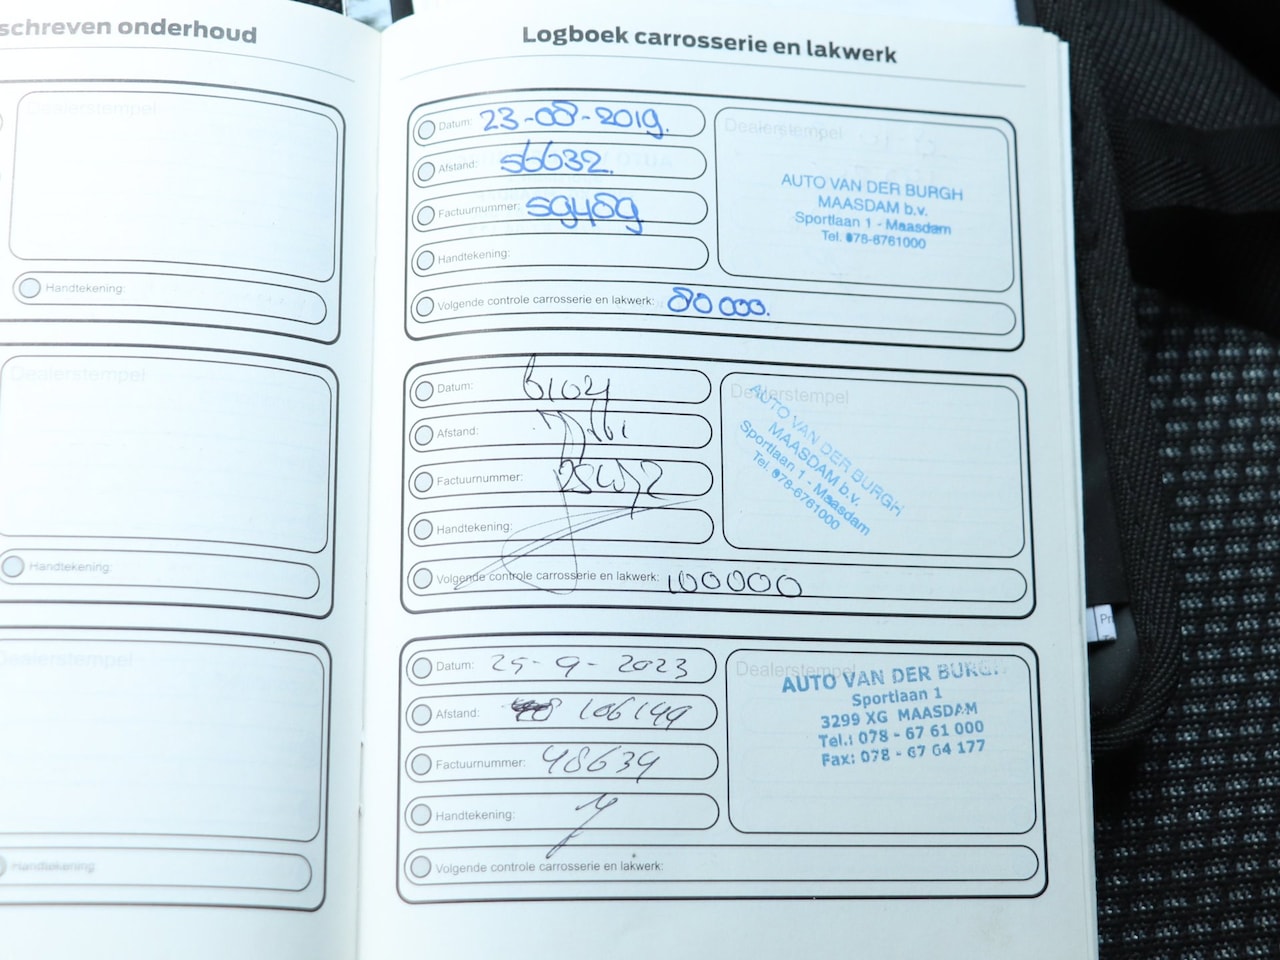 schreven onderhoud
Dealerstempel
Handtekening:
Dealerstempel
Handtekening:
Dealerstempel
Handtekening
Logboek carrosserie en lakwerk
Datum: 23-08-2019.
Afstand: 56632.
Factuurnummer: 59489
Handtekening:
Volgende controle carrosserie en lakwerk: 80000.
Dealerstempel
AUTO VAN DER BURGH
MAASDAM b.v.
Sportlaan 1 - Maasdam
Tel. 078-6761000
Datum:
Afstand:
Factuurnummer:
Handtekening:
Volgende controle carrosserie en lakwerk: 100000
Dealerstempel
AUTO VAN DER BURGH
MAASDAM b.v.
Sportlaan 1 - Maasdam
Tel. 078-6761000
Datum: 25-9-2023
Afstand: 106149
Factuurnummer: 48634
Handtekening:
Volgende controle carrosserie en lakwerk:
Dealerstempel
AUTO VAN DER BURGH
Sportlaan 1
3299 XG MAASDAM
Tel.: 078 - 67 61 000
Fax: 078 - 67 64 177